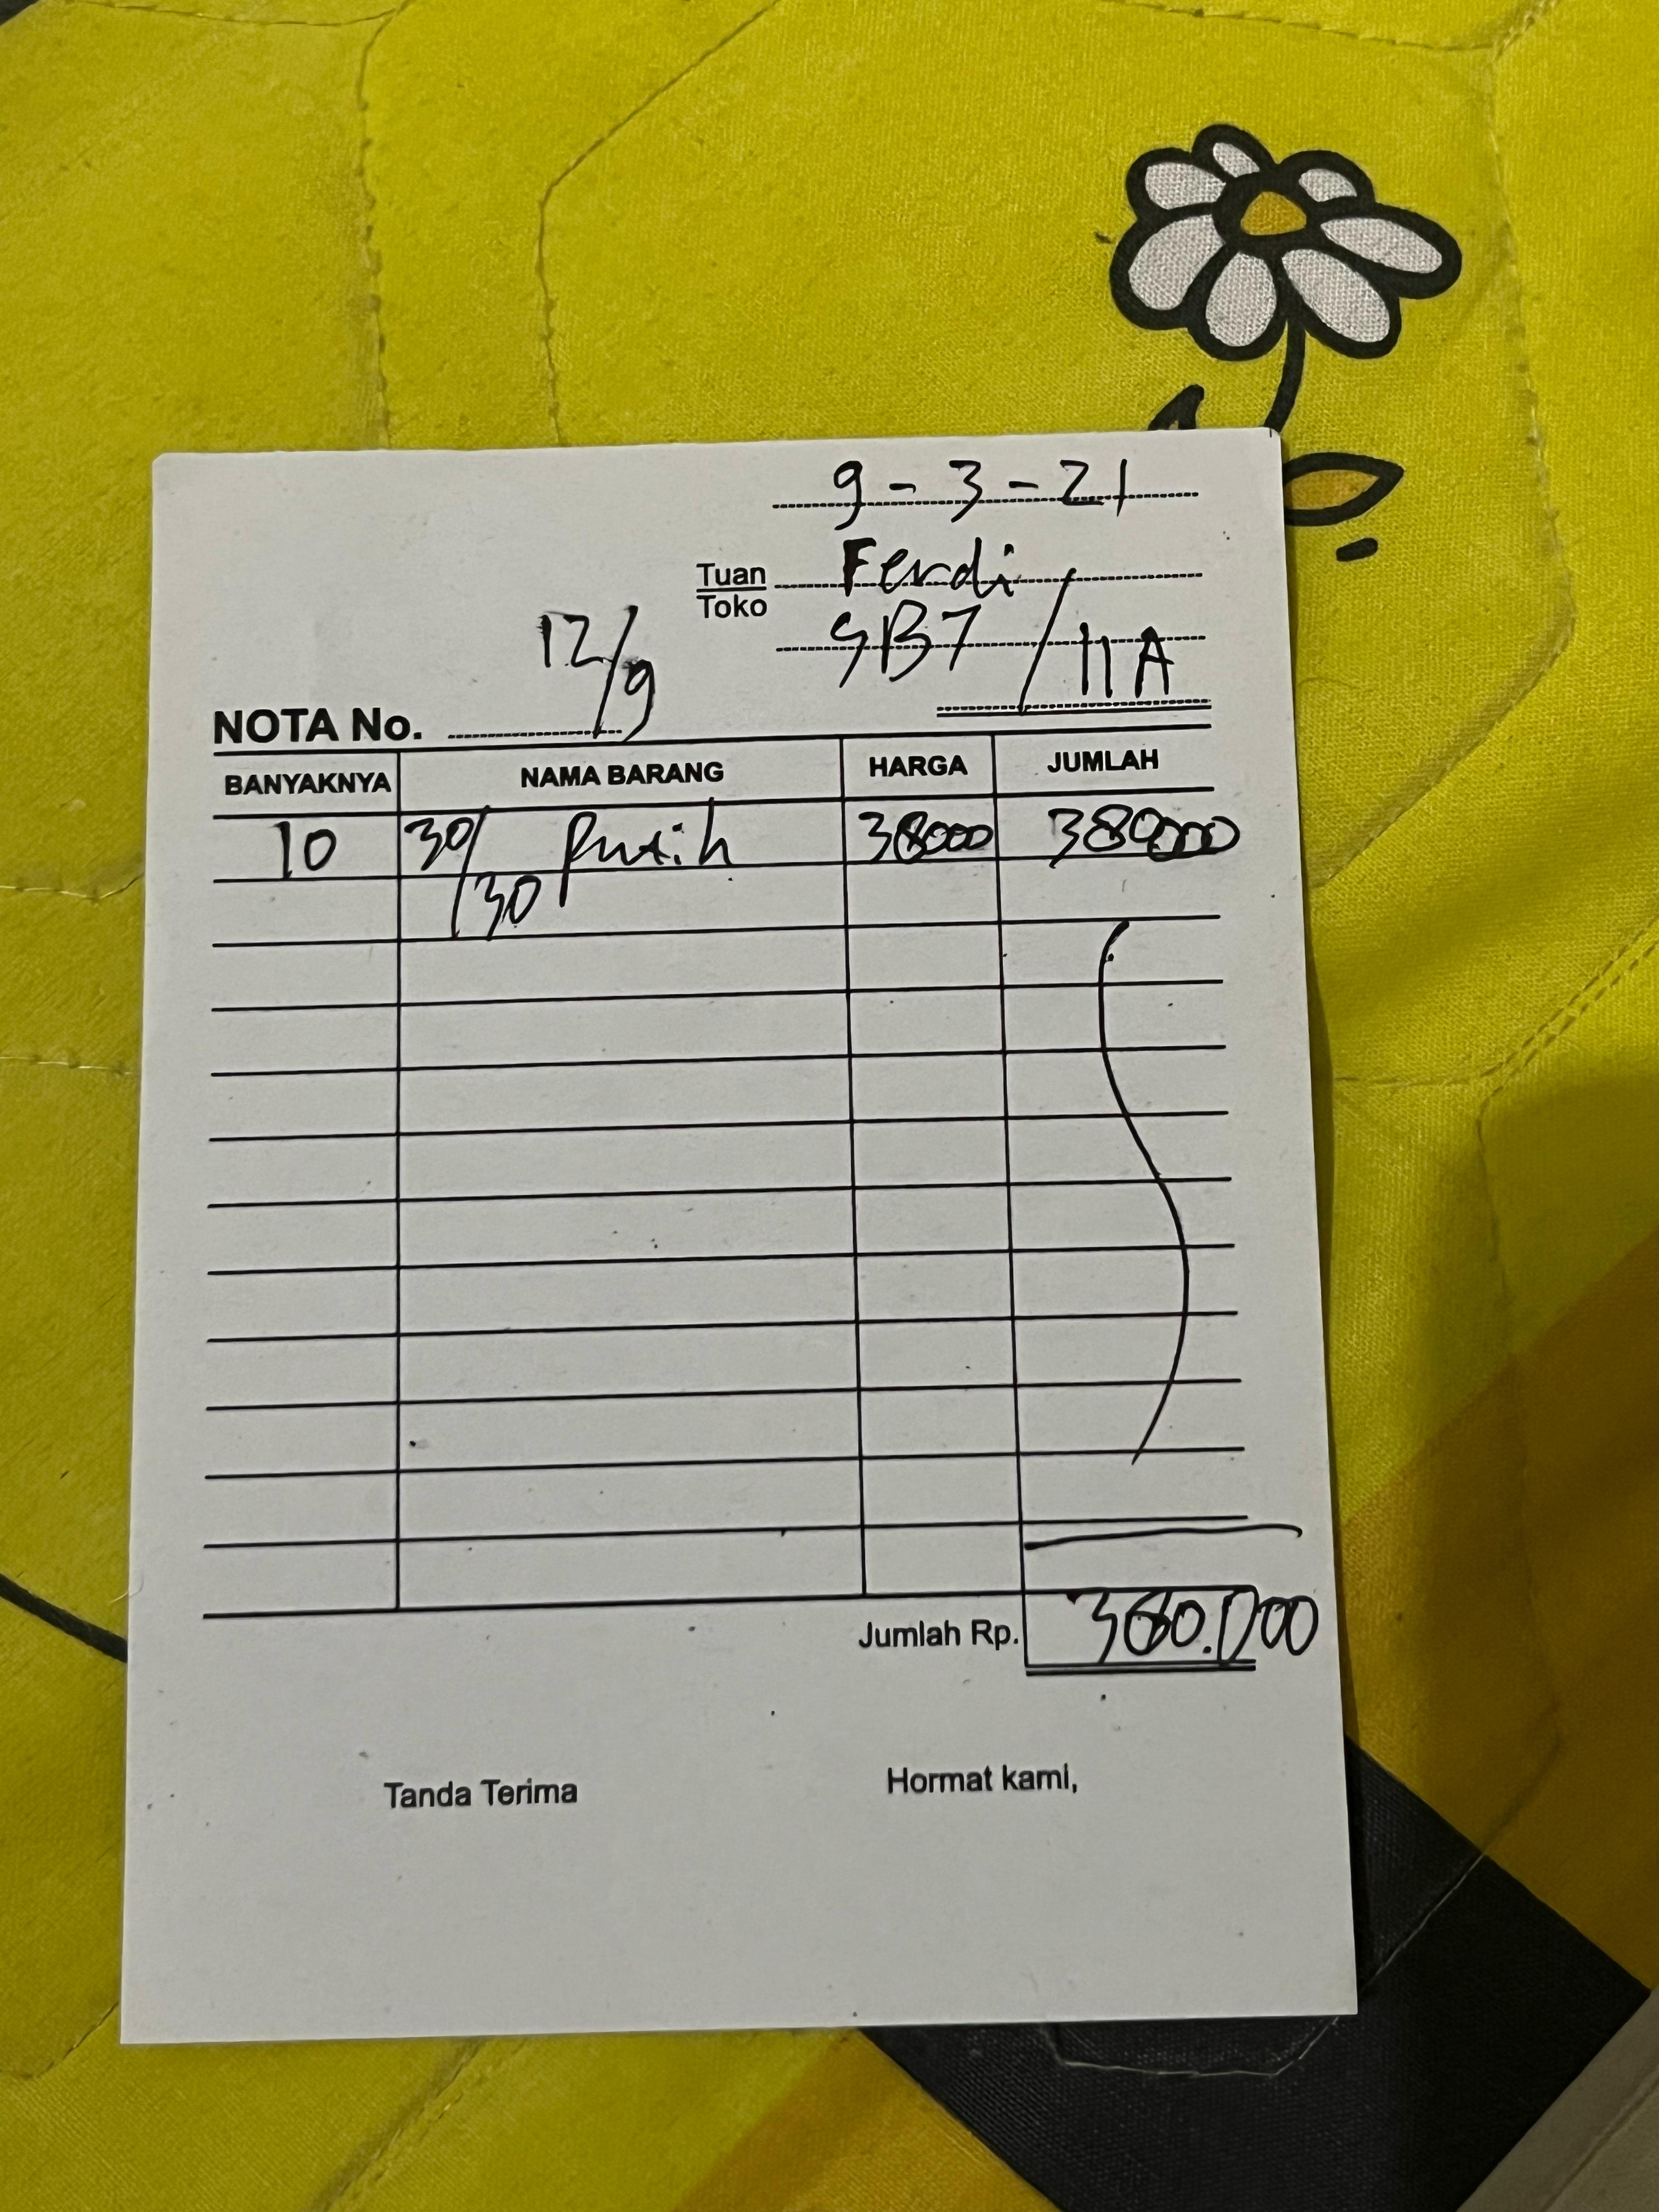 9 - 3 - 21
Tuan Ferdi
Toko
SB7 / 11A
NOTA No. 12/9
BANYAKNYA NAMA BARANG HARGA JUMLAH
10 30/30 Putih 38000 380000
Jumlah Rp. 380.000
Tanda Terima Hormat kami,